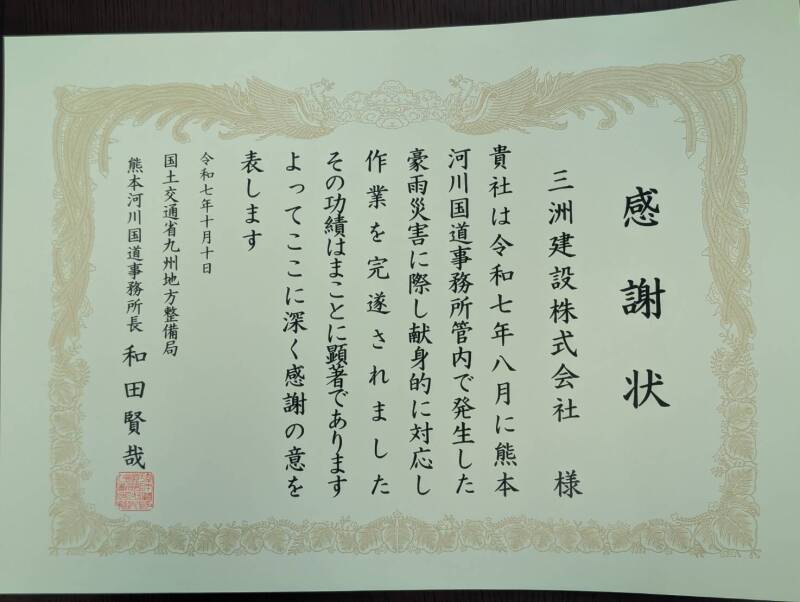 感謝状
三洲建設株式会社 様
貴社は令和七年八月に熊本
河川国道事務所管内で発生した
豪雨災害に際し献身的に対応し
作業を完遂されました
その功績はまことに顕著であります
よってここに深く感謝の意を
表します
令和七年十月十日
国土交通省九州地方整備局
熊本河川国道事務所長 和田賢哉